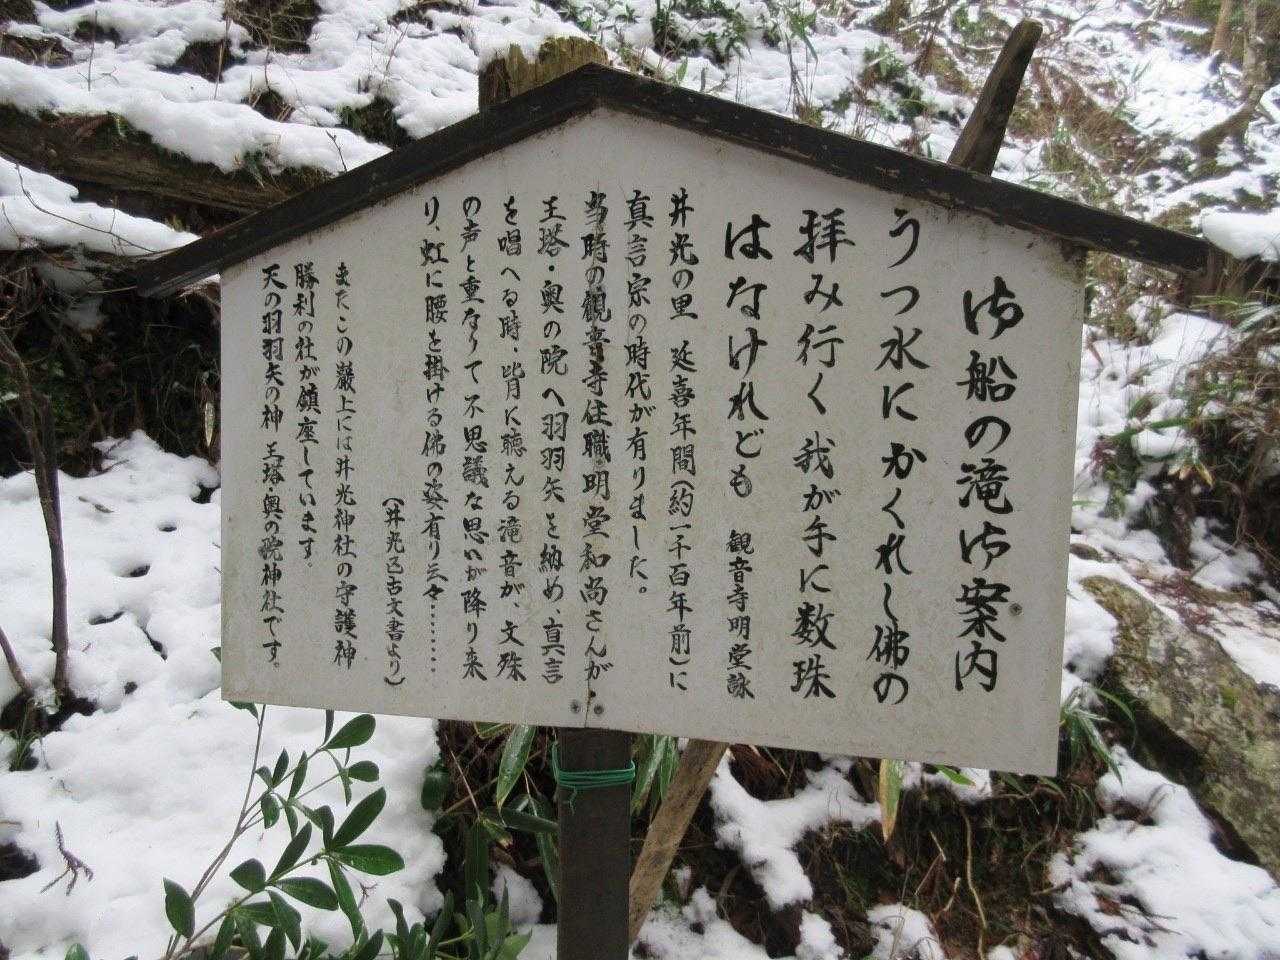 御船の滝御案内
うつ水にかくれし佛の
拝み行く我が手に数珠
はなけれども 観音寺明堂詠
井光の里 延喜年間(約一千百年前)に
真言宗の時代が有りました。
当時の観音寺住職明堂和尚さんが・
王塔・奥の院へ羽羽矢を納め、真言
を唱へる時・皆に聴える滝音が、文殊
の声と重なりて不思議な思いが降り来
り、虹に腰を掛ける佛の姿有り云々………
(井光区古文書より)
またこの巌上には井光神社の守護神
勝利の社が鎮座しています。
天の羽羽矢の神 王塔・奥の院神社です。